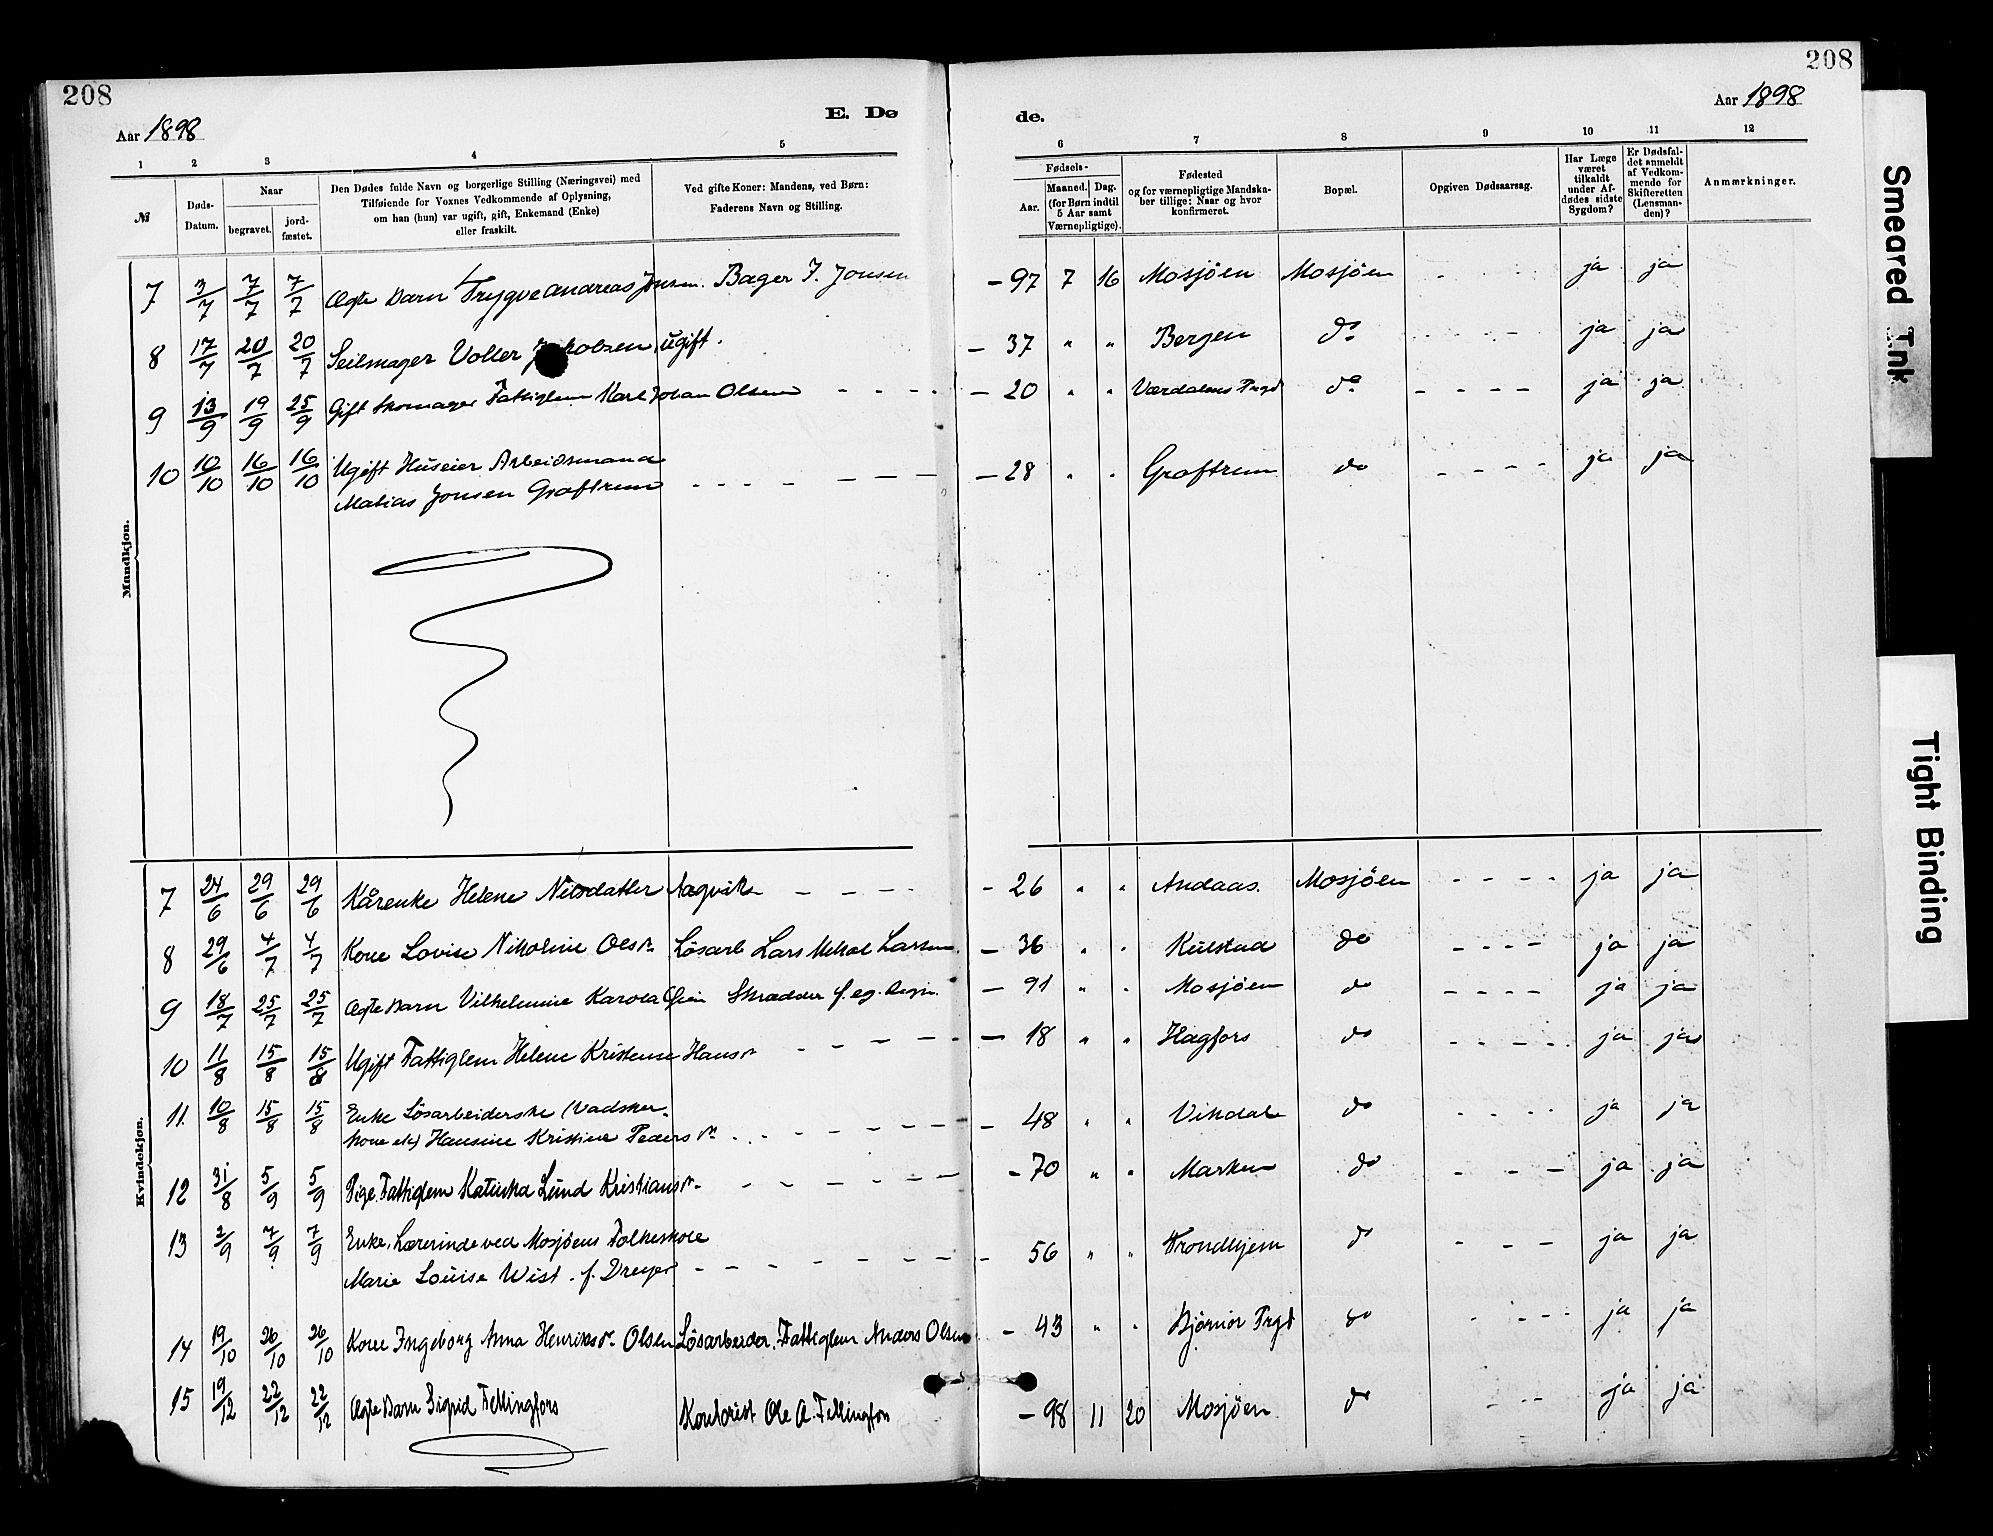 208
208
Aar 1898
E. Dø
de.
Aar 1898
1 2 3 4 5 6 7 8 9 10 11 12
№
Døds-
Datum.
Naar
begravet.
jord-
fæstet.
Den Dødes fulde Navn og borgerlige Stilling (Næringsvei) med
Tilføiende for Voxnes Vedkommende af Oplysning,
om han (hun) var ugift, gift, Enkemand (Enke)
eller fraskilt.
Ved gifte Koner: Mandens, ved Børn:
Faderens Navn og Stilling.
Fødsels-
Aar.
Maaned. Dag.
(for Børn indtil
5 Aar samt
Værnepligtige).
Fødested
og for værnepligtige Mandska-
ber tillige: Naar og hvor
konfirmeret.
Bopæl.
Opgiven Dødsaarsag.
Har Læge
været
tilkaldt
under Af-
dødes sidste
Sygdom?
Er Dødsfal-
det anmeldt
af Vedkom-
mende for
Skifteretten
(Lensman-
den)?
Anmærkninger.
Mandkjøn.
7 3/7 7/7 7/7 Ægte Barn Trygve Andreas Jonsen. Bager J. Jonsen – 97 7 16 Mosjöen Mosjöen - - - - ja ja
8 17/7 20/7 20/7 Seilmager Voller ugift. – 37 " " Bergen do - - - - ja ja
9 13/9 19/9 25/9 Gift Skomager Fattiglem Karl Johan Olsen - - - - – 20 " " Værdalens Prgd do - - - - ja ja
10 10/10 16/10 16/10 Ugift Huseier Arbeidsmand
Matias Jonsen Graftrem - - - - - - - – 28 " " Graftrem do - - - - ja ja
Kvindekjøn.
7 24/6 29/6 29/6 Kårenke Helene Nilsdatter Aagvik - - - - – 26 " " Andaas. Mosjöen - - - - ja ja
8 29/6 4/7 4/7 Kone Lovise Nikoline Olsdr. Lösarb Lars Mikal Larsen. – 36 " " Kulstad do - - - - ja ja
9 18/7 25/7 25/7 Ægte Barn Vilhelmine Karola Skrædder – 91 " " Mosjöen do - - - - ja ja
10 11/8 15/8 15/8 Ugift Fattiglem Helene Kristense Hansdr - - - - - – 18 " " Hagfors do - - - - ja ja
11. 10/8 15/8 15/8 Enke Lösarbeiderske (Vadsker-
kone etc) Hansine Kristine Pedersdr. - - - - - - – 48 " " Vikdal do - - - - ja ja
12 31/8 5/9 5/9 Pige. Fattiglem Katinka Lund Kristiansdr. - - - - - - – 70 " " Marken do - - - ja ja
13 2/9 7/9 7/9 Enke. Lærerinde ved Mosjöens Folkeskole
Marie Louise Wist. f. Dreyer - - - - - - - – 56 " " Trondhjem do - - - ja ja
14 19/10 26/10 26/10 Kone Ingeborg Anna Henriksdr. Olsen Lösarbeider. Fattiglem Anders Olsen – 43 " " Bjørnør Prgd do - - - - ja ja
15 19/12 22/12 22/12 Ægte Barn Sigrid Fellingfors Kontorist Ole A. Fellingfors – 98 11 20 Mosjöen do - - ja ja
Smeared Ink
Tight Binding